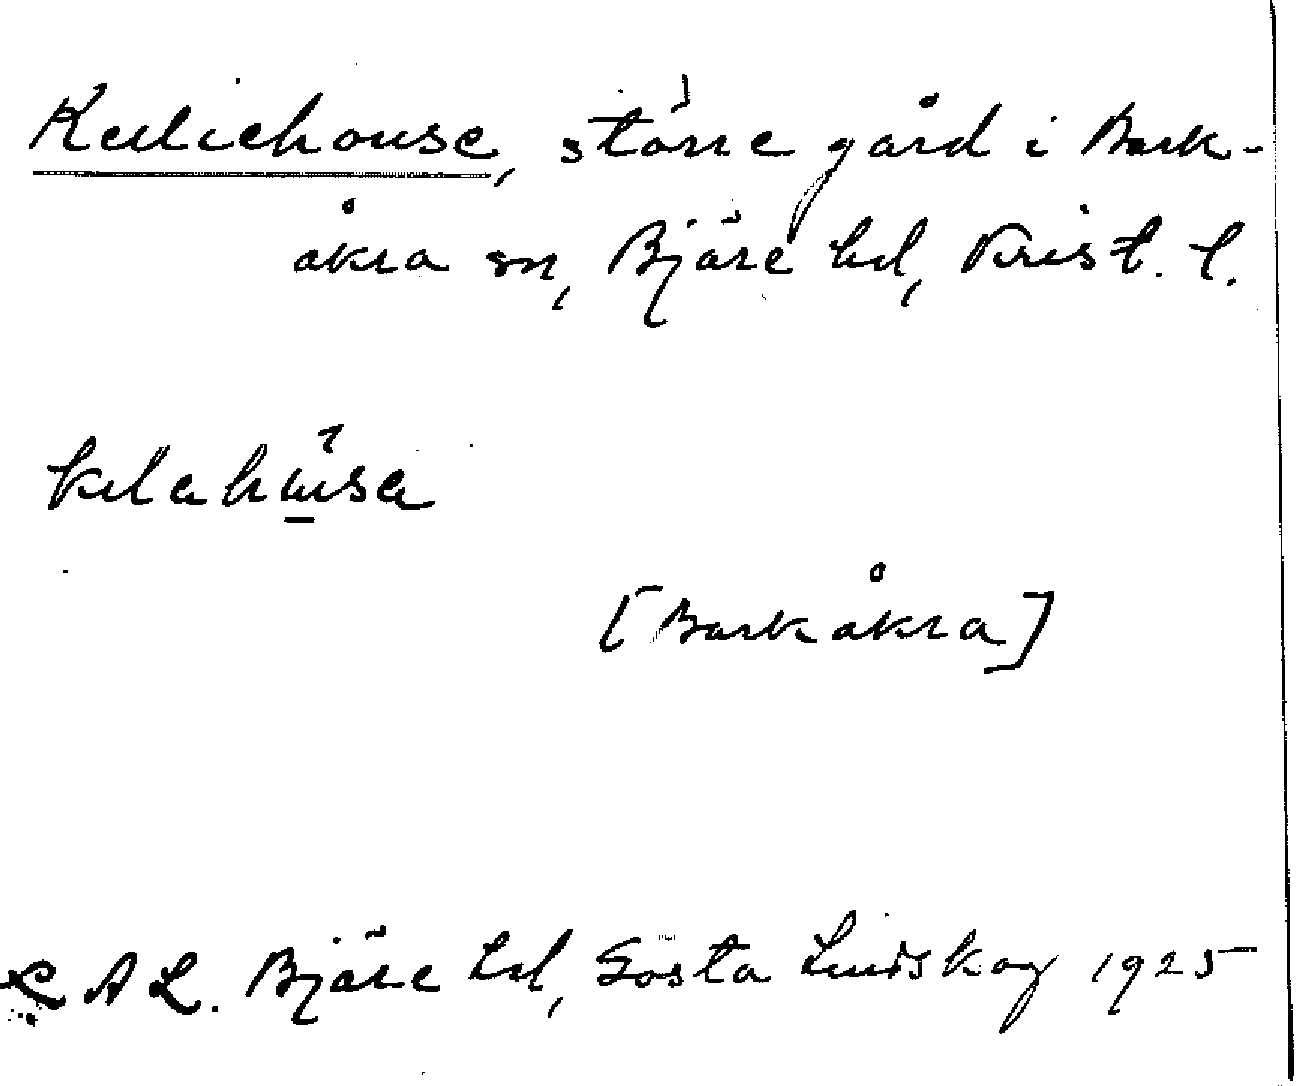 Keeliehouse, större gård i Bark-
åkra sn, Bjäre hd, Krist. l.
[Barkåkra]
LAL. Bjäre hd, Gösta Lindskog 1925